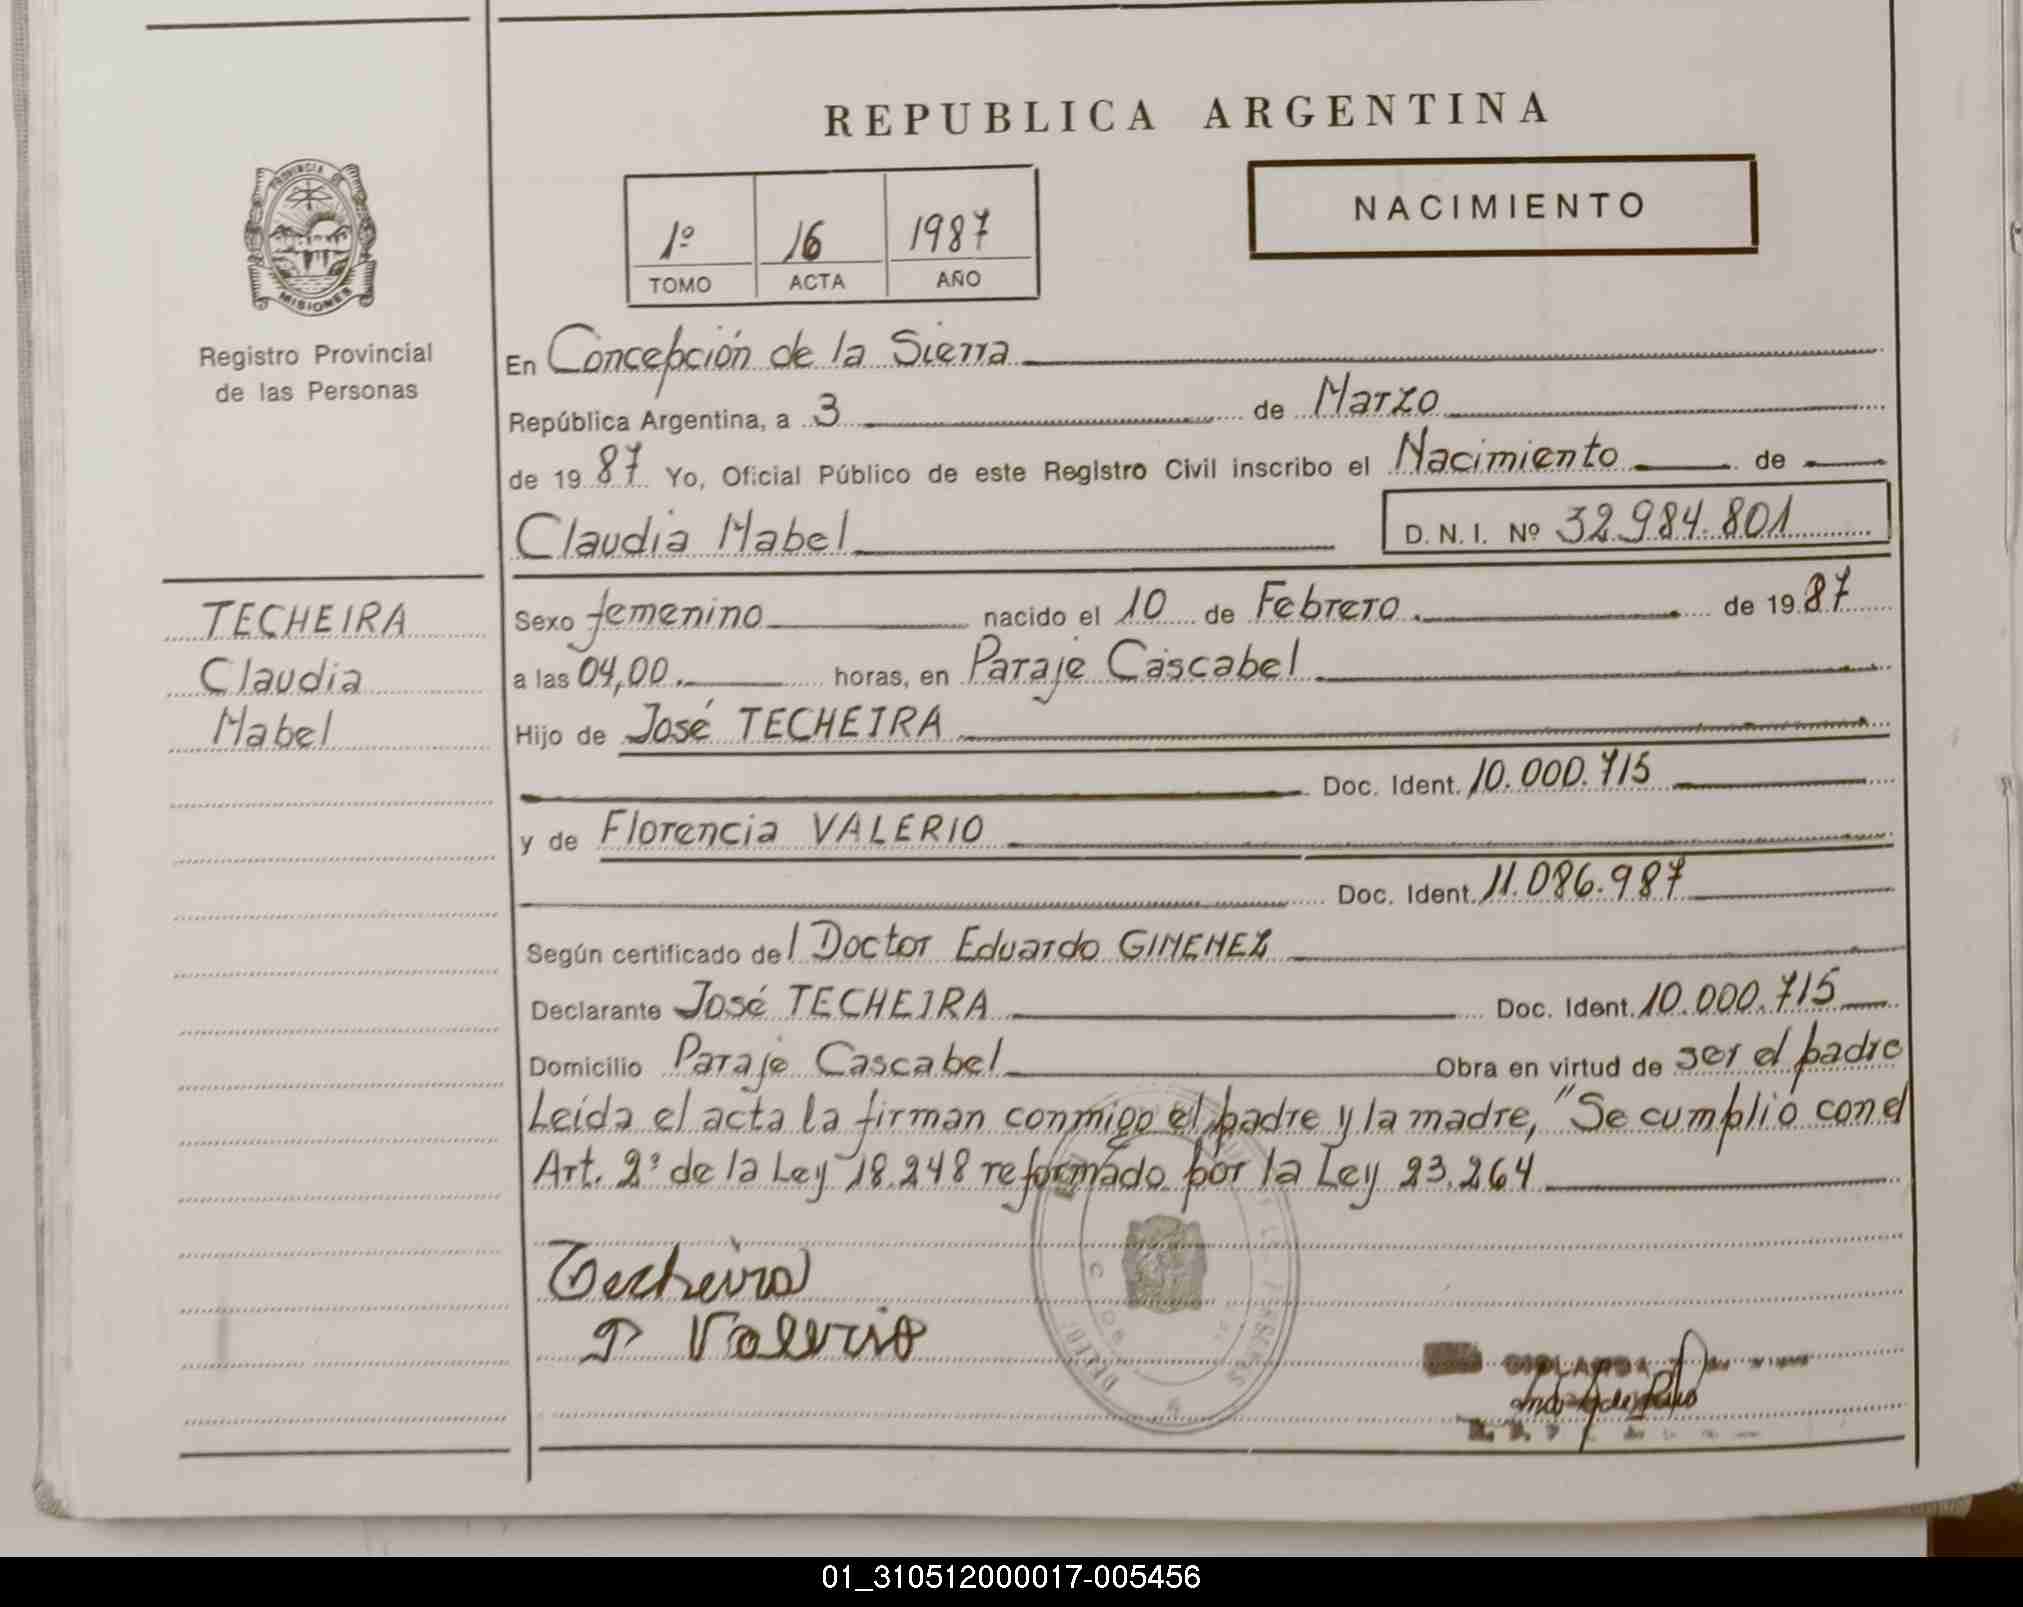 REPUBLICA ARGENTINA
PROVINCIA DE
MISIONES
Registro Provincial
de las Personas
1º 16 1987
TOMO ACTA AÑO
NACIMIENTO
En Concepción de la Sierra
República Argentina, a 3 de Marzo
de 1987 Yo, Oficial Público de este Registro Civil inscribo el Nacimiento de
Claudia Mabel D. N. I. Nº 32.984.801
TECHEIRA
Claudia
Mabel
Sexo femenino nacido el 10 de Febrero de 1987
a las 04,00 horas, en Paraje Cascabel
Hijo de José TECHEIRA
Doc. Ident. 10.000.715
y de Florencia VALERIO
Doc. Ident. 11.086.987
Según certificado del Doctor Eduardo GIMENEZ
Declarante José TECHEIRA Doc. Ident. 10.000.715
Domicilio Paraje Cascabel Obra en virtud de ser el padre
Leída el acta la firman conmigo el padre y la madre, "Se cumplió con el
Art. 2º de la Ley 18.248 reformado por la Ley 23.264
Techeira
Valerio
01_310512000017-005456